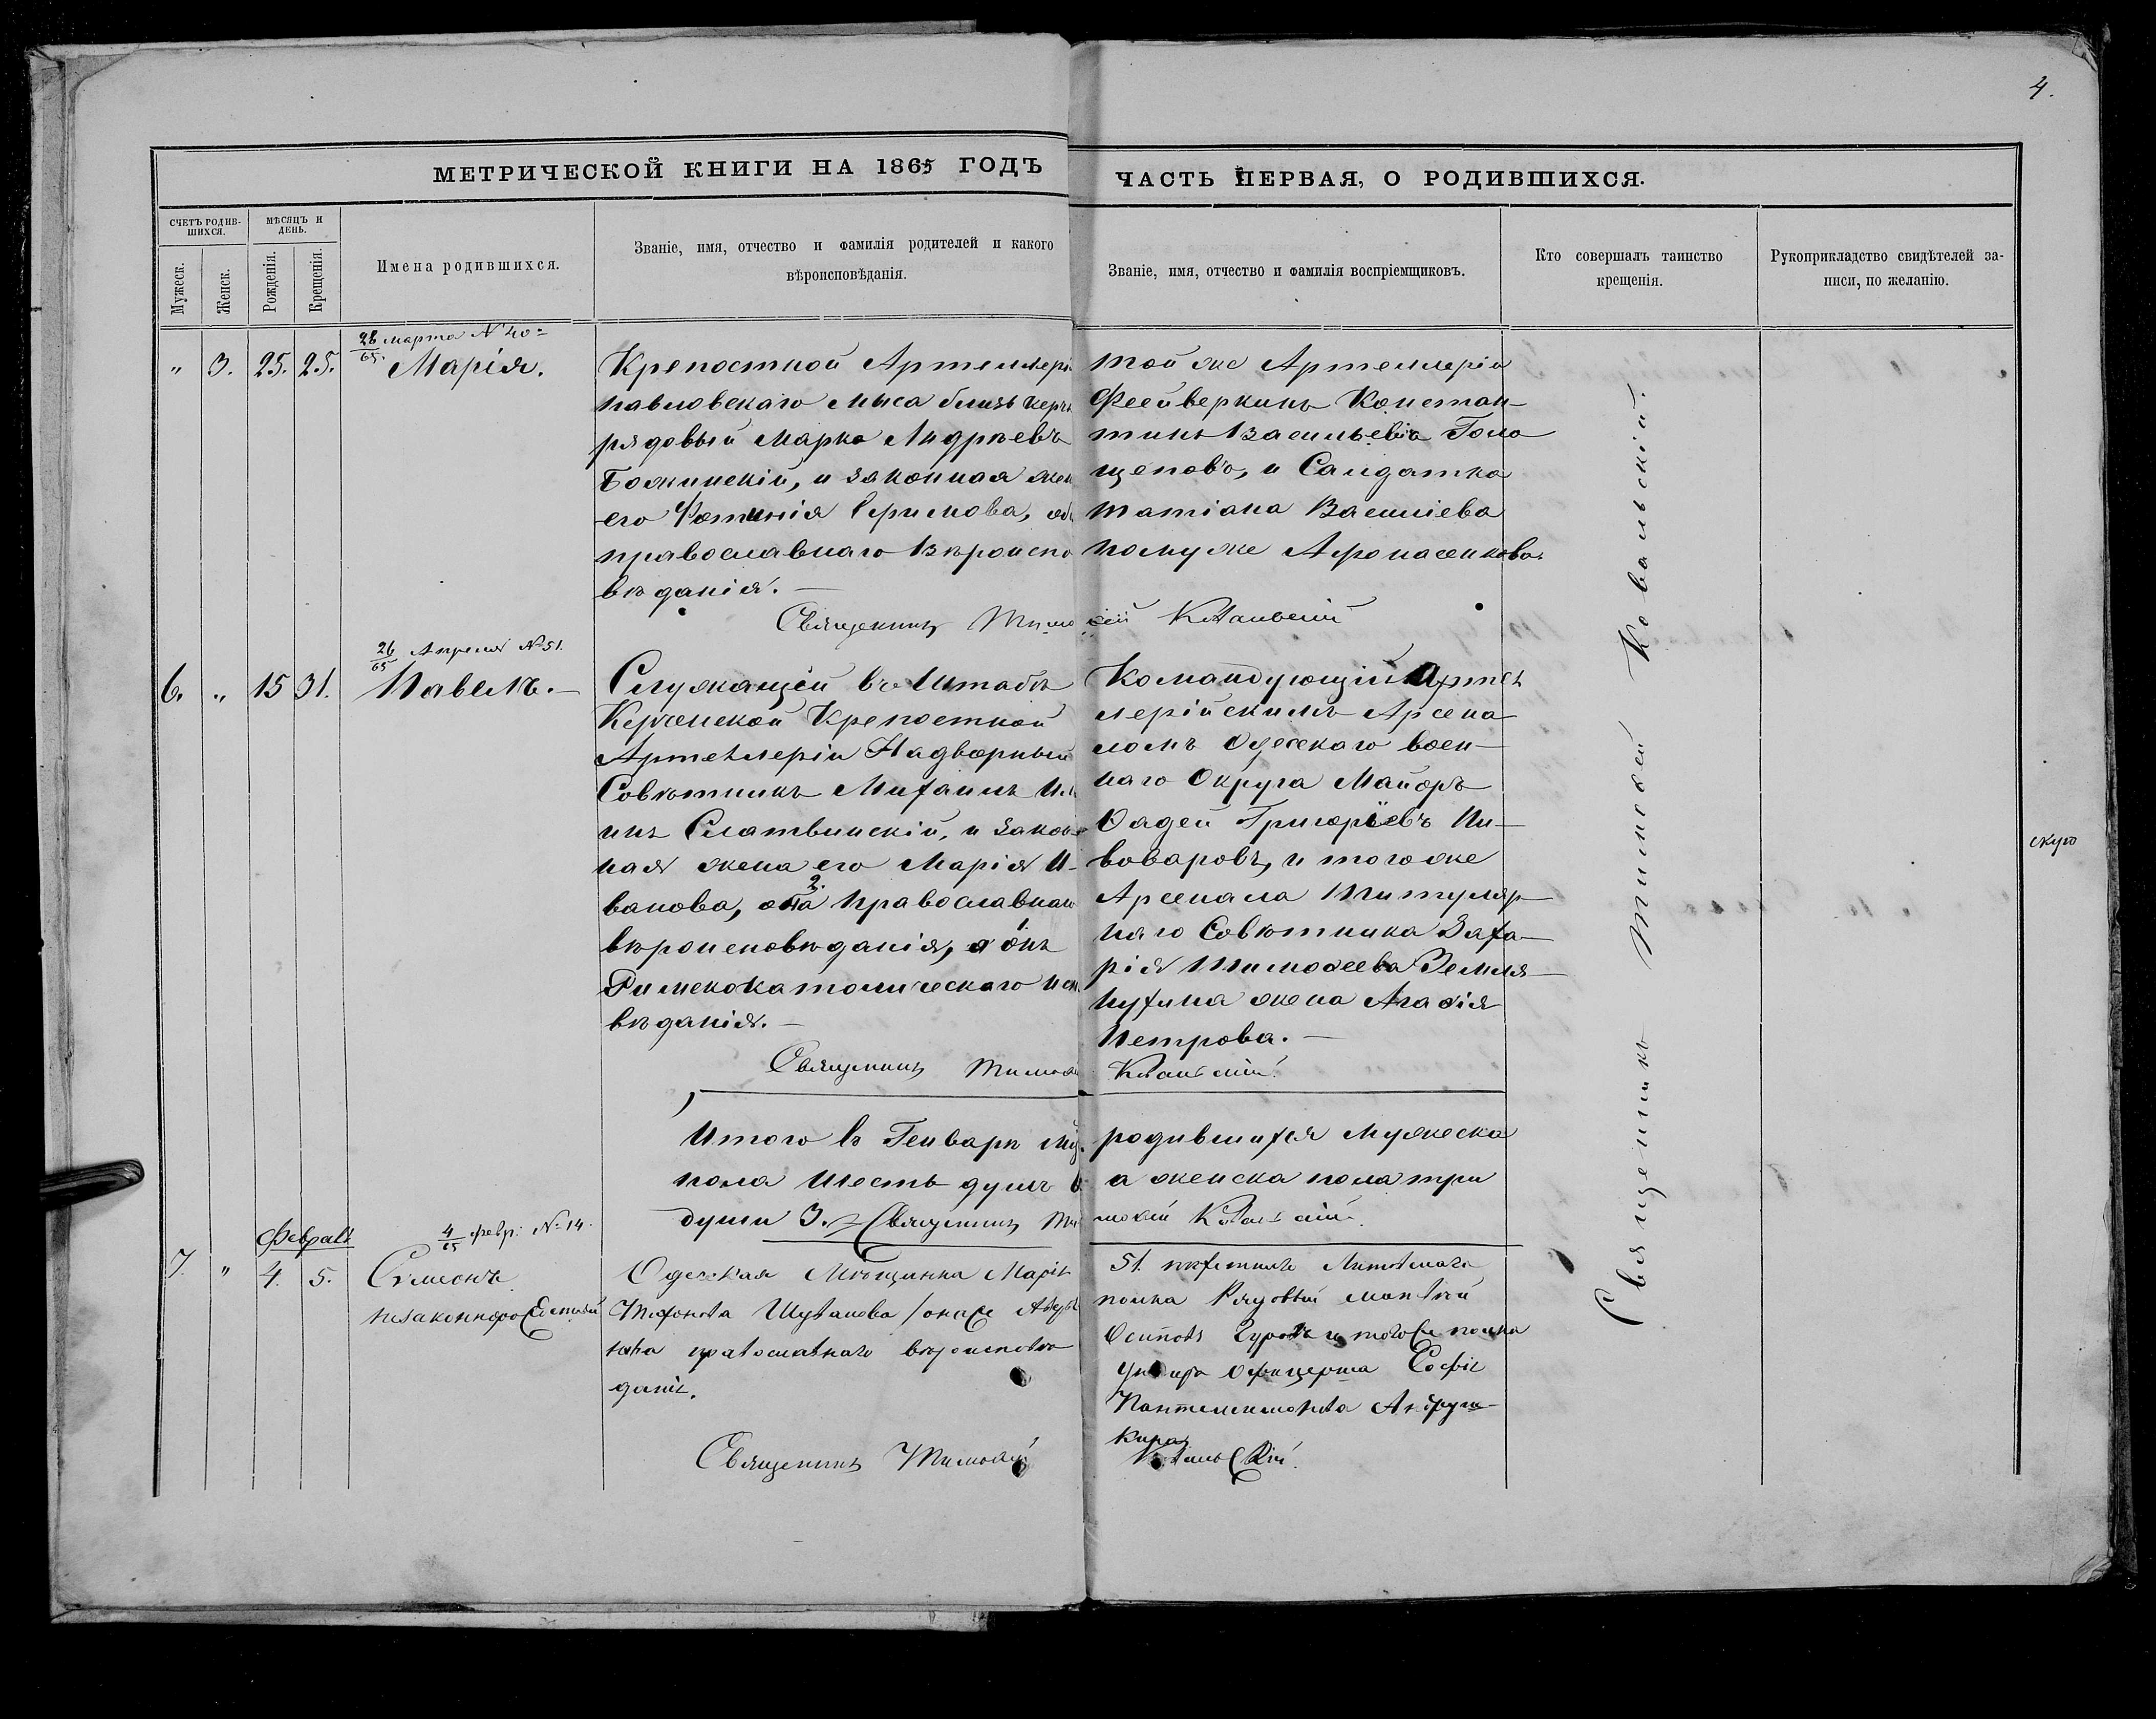 4.
МЕТРИЧЕСКОЙ КНИГИ НА 1865 ГОДЪ
ЧАСТЬ ПЕРВАЯ, О РОДИВШИХСЯ.
СЧЕТЪ РОДИВ-
ШИХСЯ.
МѢСЯЦЪ И
ДЕНЬ.
Мужеск.
Женск.
Рожденія.
Крещенія.
Имена родившихся.
Званіе, имя, отчество и фамилія родителей и какого
вѣроисповѣданія.
Званіе, имя, отчество и фамилія воспріемщиковъ.
Кто совершалъ таинство
крещенія.
Рукоприкладство свидѣтелей за-
писи, по желанію.
26/65 марта № 40
" 3. 25. 25. Марія.
Крепостной Артиллеріи
павловскаго мыса близь Керчи
рядовый Марко Андреевъ
Божинскій, и законная жен
его Фотинія, об
православнаго Вѣроиспо
вѣданія.
Священникъ Тимо
той же Артиллеріи
Фееверкинъ Констан-
тинъ Васильевъ Голо
щеповъ, и Салдатка
Татіана Василіева
помуже Афонасенкова
Ковальскій
26/65 Апреля № 51.
6. " 15 31. Павелъ.
Служащей въ Штабѣ
Керченской Крепостной
Артиллеріи Надворный
Совѣтникъ Михаилъ
инъ Слатвинскій, и закон-
ная жена его Марія И-
ванова, она православнаго
вѣроисповѣданія, а онъ
Римскокатолическаго испо
вѣданія.
Священникъ Тимоѳ
Командующій Артил
лерійскимъ Арсена
ломъ Одесскаго воен-
наго Округа Маиоръ
Ѳадей Григоріевъ Пи-
воваровъ, и тогоже
Арсенала Титуляр-
наго Совѣтника Заха-
рія Тимоѳеева Земля-
нухина жена Агаѳія
Петрова.
Ковальскій
Итого въ Генварѣ муж.
пола шесть душъ 6
души 3. Священникъ Ти
родившихся мужеска
а женска пола три
моѳей Ковальскій
Февраль
4/65 февр. № 14.
7. " 4. 5. Сѵмеонъ
незаконнорожденный
Одесская Мѣщанка Марія
православнаго вѣроисповѣ
данія.
Священникъ Тимоѳей
51. пѣхотнаго Литовскаго
полка Рядовый
Осиповъ и тогоже полка
Унтеръ Офицерша Софія
Пантелеимонова Андруш-
кина
Ковальскій
Священникъ Тимоѳей Ковальскій.
скую